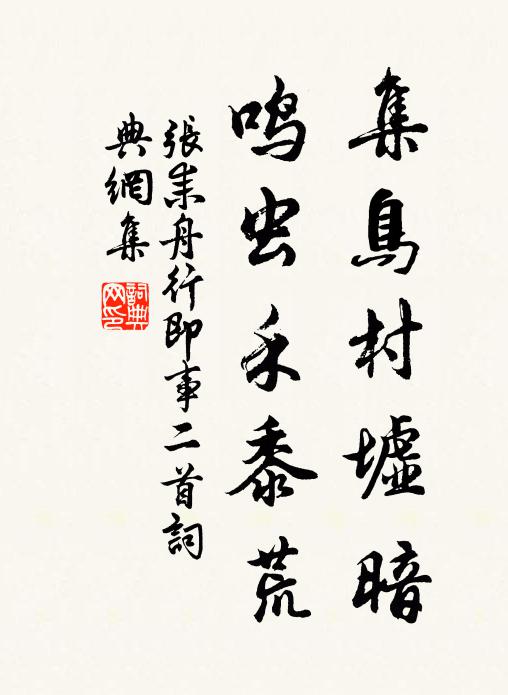 集鳥村墟暗
鸣虫禾黍荒
張耒舟行即事二首詞
典網集
詞典
网印